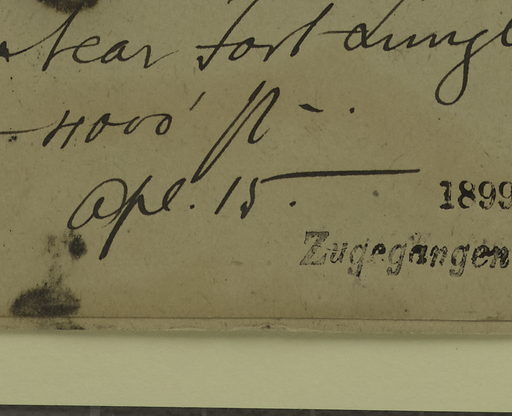 Near Fort Lungl
- 4000' ft - .
Apl. 15. 1899
Zugegangen